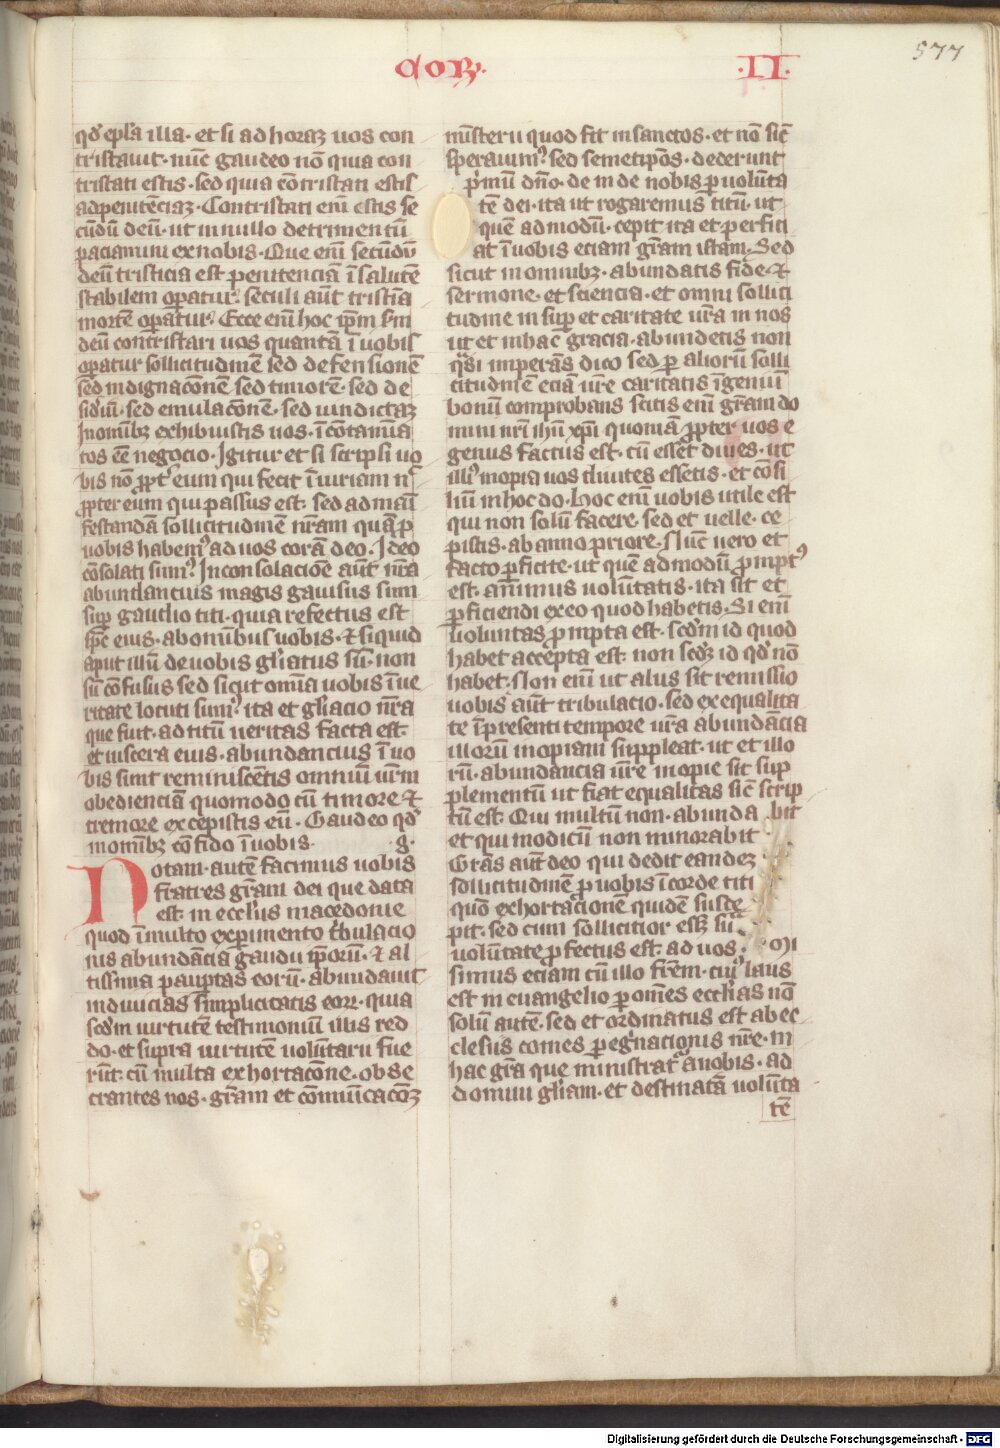 Cor̄.
.II.
577
qd̓ epl̓a illa. et si ad horaꝫ uos con
tristauit. nūc gaudeo nō quia con
tristati estis. sed quia cōtristati estis
ad penitēciaꝫ. Contristati eni̅ estis se
cūdū deū. ut in nullo detrimentū
paciamini ex nobis. Que eni̅ secūdū
deū tristicia est penitenciā ī salutē
stabilem operatur. seculi aūt tristia
mortē operatur. Ecce eni̅ hoc ip̄m s̄m
deū contristari uos quantā ī uobis
operatur sollicitudinē sed defensionē
sed indignacōnē. sed timorē. sed de
sid̓iū. sed emulacōnē. sed uindictaꝫ
In omībꝫ exhibuistis uos. ī cōtamīa
tos eē negocio. Igitur et si scripsi uo
bis nō ꝓpt̓ eum qui fecit ī iuriam n̄
ꝓpter eum qui passus est. sed ad maī
festandā sollicitudinē nr̄am quā ꝓ
uobis habem̓ ad uos corā deo. Ideo
cōsolati sum̓. In consolacionē aūt nr̄a
abundancius magis gauisus sum
sup gaudio titi. quia refectus est
sp̄c eius. ab omībus uobis. Et siquid
aput illū de uobis gl̓iatus sū. non
sū cōfusus sed sicut omīa uobis ī ue
ritate locuti sum̓. ita et gl̓iacio nr̄a
que fuit. ad titū ueritas facta est.
et uiscera eius. abundancius ī uo
bis sunt reminiscētis omniū ur̄m
obedienciā quomodo cū timore et
tremore excepistis eū. Gaudeo qd̓
in omībꝫ cōfido ī uobis. .g.
Notam. autē facimus uobis
fratres gr̄am dei que data
est. in eccl̓iis macedonie
quod ī multo experimento tribulacio
nis abundācia gaudii ip̄orū. et al
tissima paupertas eorū. abundauit
in diuicias simplicitatis eorꝝ. quia
scd̓m uirtutē testimoniū illis red
do. et supra uirtutē uolūtarii fue
rūt. cū multa exhortacōne. obse
crantes nos. gr̄am et cōmūicacōꝫ
mīsterii quod fit in sanctos. et nō sic̄
sperauim̓. sed semetip̄os. dederunt
p̓mū dn̄o. deinde nobis p uolūta
tē dei. ita ut rogaremus titū. ut
quē admodū. cepit ita et perfici
at ī uobis eciam gr̄am istam. Sed
sicut in omnibꝫ. abundatis fide. et
sermone. et sciencia. et omni sollici
tudine insup et caritate ur̄a in nos
ut et in hac̄ gracia. abundetis non
q̓si imperās dico sed p aliorū solli
citudinē eciā ur̄e caritatis īgeniū
bonū comprobans scitis eni̅ gr̄am do
mini nr̄i ih̄u xp̄i quoniā ꝓpter uos e
genus factus est. cū esset̄ diues. ut
illi̓ inopia uos diuites essetis. et cōsi
liū in hoc do. Hoc eni̅ uobis utile est
qui non solū facere. sed et uelle. ce
pistis. ab anno priore. Nūc uero et
facto perficite. ut quē admodū ꝓmpt̓
est. animus uolūtatis. ita sit et
perficiendi ex eo quod habetis. Si eni̅
uoluntas ꝓmpta est. scd̓m id quod
habet accepta est. non scd̓ꝫ id qd̓ nō
habet. Non eni̅ ut aliis sit remissio
uobis aūt tribulacio. sed ex equalita
te ī presenti tempore ur̄a abundācia
illorū inopiam suppleat. ut et illo
rū. abundancia ur̄e inopie sit sup
plementū ut fiat equalitas sic̄ scrip
tū est. Qui multū non. abunda bit
et qui modicū non minorabit
Gr̄as aūt deo qui dedit eandeꝫ
sollicitudinē p uobis ī corde titi
quō exhortacionē quidē susce
pit. sed cum sollicitior esset̄ su
uolūtate profectus est. ad uos. Mi
simus eciam cū illo fr̄em. cui̓ laus
est in euangelio p omēs eccl̓ias nō
solū autē. sed et ordinatus est ab ec
clesiis comes peregr̓nacionis nr̄e. in
hac gr̄a que ministrat̓ a nobis. ad
domini gl̓iam. et destinatā uolūta
tē
Digitalisierung gefördert durch die Deutsche Forschungsgemeinschaft - DFG